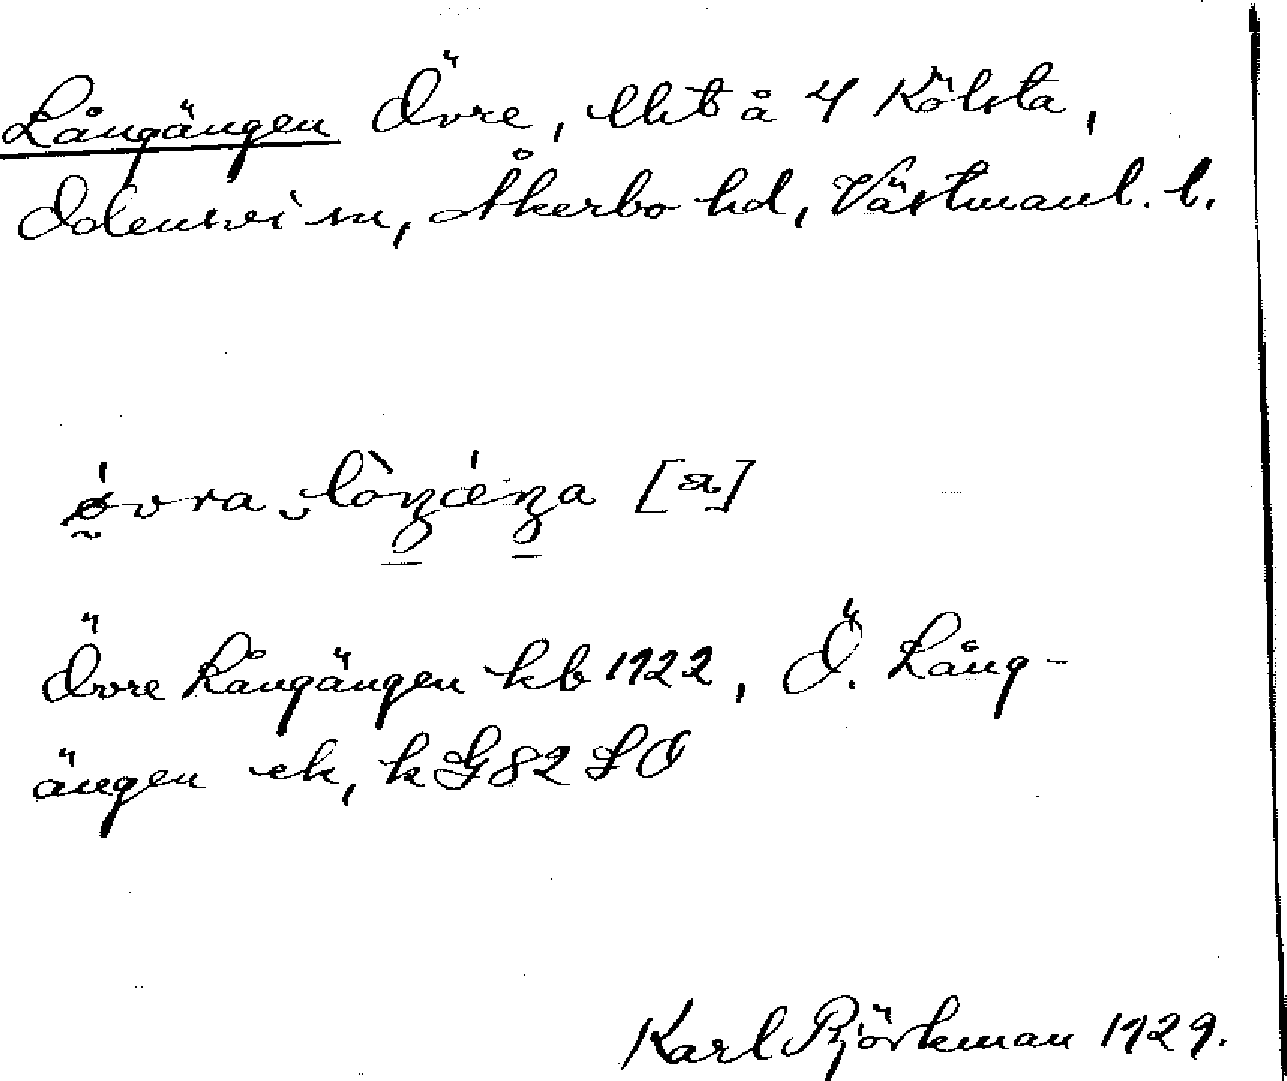 Långängen Övre, lht å 4 Kölsta,
Odensvi sn, Åkerbo hd, Västmanl. l.
Övre Långängen kb 1922, Ö. Lång-
ängen ek, k G 82 S O
Karl Björkman 1929.